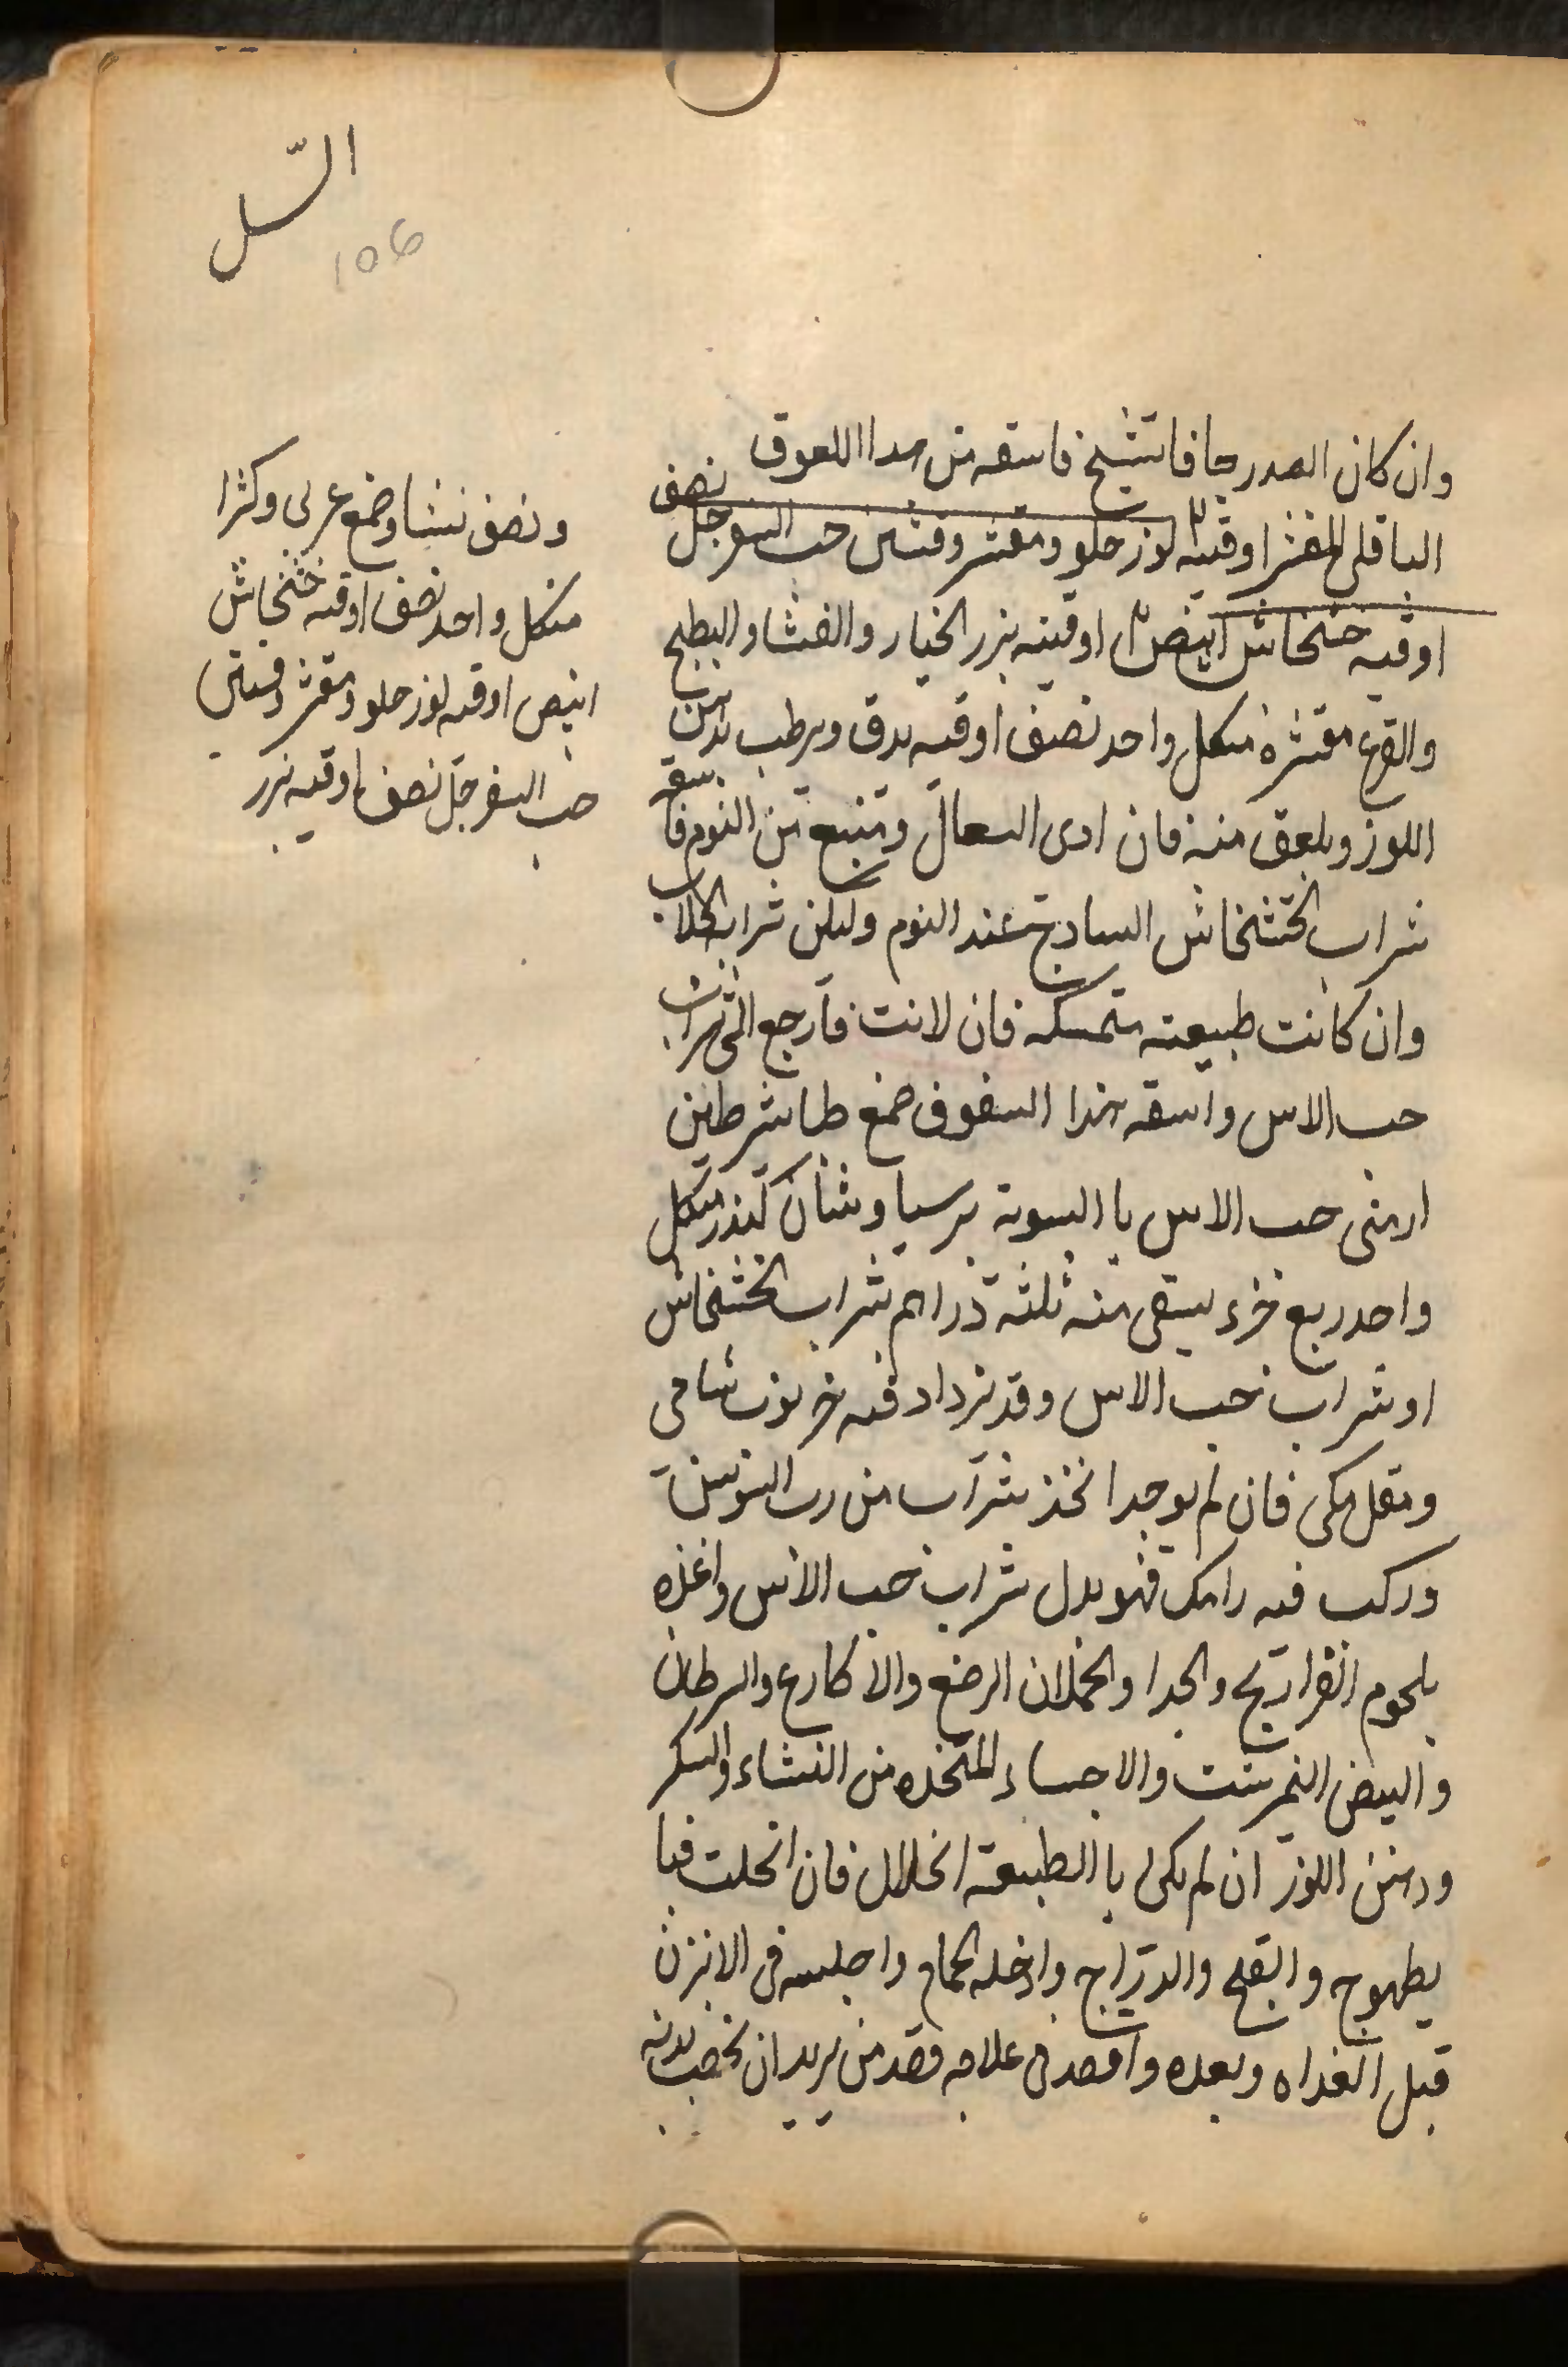 السّل
106
وان كان الصدر جافا تشيخ فاسقه من هدا اللعوق
الباقلى المقشر اوقيه لوز حلو ومقشر وقتين حب السفرجل نصف
اوقيه خشخاش ابيض اوقيته بزر الخيار والقثا والبطيح
والقرع مقشره منكل واحد نصف اوقيه يدق ويرطب بدهن
اللوز ويلعق منه فان ادى السعال ومنبع من النوم فاسقه
شراب الخشخاش السادج عند النوم وليكن شراب الجلاب
وان كانت طبيعته متمسكه فان لانت فارجع الى شراب
حب الاس واسقه هذا السفوف صمغ طباشر طين
ارمنى حب الاس با السوية برسياوشان كندر منكل
واحد ربع جزء يسقى منه ثلثه دراهم شراب الخشخاش
او شراب حب الاس وقد نرداد فيه خرنوب شامى
ومقل مكى فان لم يوجد اتخذ شراب من رب السوس
وركب فيه رامك فهو بدل شراب حب الاس واغذه
بلحوم الفراريج والجدا والحملان الرضع والاكارع والسرطان
والبيض النمرشت والاحساء المتخده من النشاء والسكر
ودهن اللوز ان لم يكن با الطبيعة انحلال فان انحلت فبا
يطهوج والقبج والدرّاج وادخله الحمام واجلسه فى الابزن
قبل الغداه وبعده واقصد فى علاجه قصد من يريد ان يخصب بدنه
ونصف نشا وصمغ عربى وكثرا
منكل واحد نصف اوقيه خشخاش
ابيض اوقيه لوز حلو ومقشر وقتين
حب السفرجل نصف اوقيه بزر